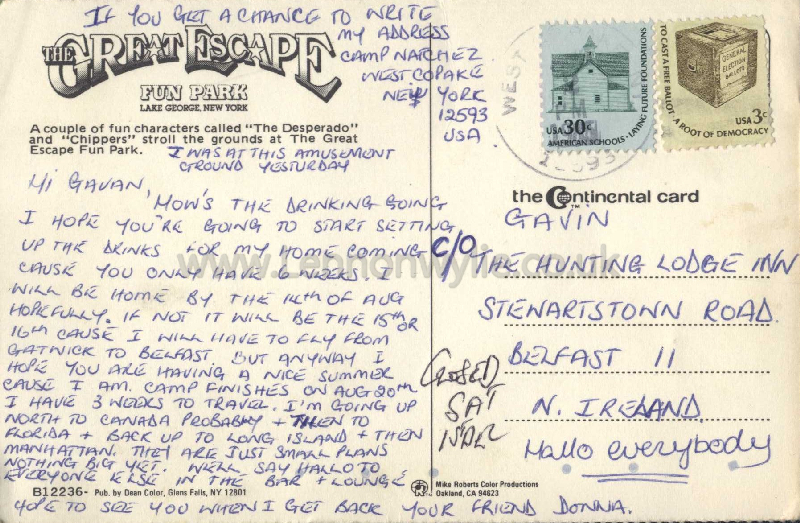 IF YOU GET A CHANCE TO WRITE
MY ADDRESS
CAMP NATCHEZ
WEST COPAKE
NEW YORK
12593
USA
THE GREAT ESCAPE
FUN PARK
LAKE GEORGE, NEW YORK
A couple of fun characters called "The Desperado"
and "Chippers" stroll the grounds at The Great
Escape Fun Park.
I WAS AT THIS AMUSEMENT
GROUND YESTURDAY
HI GAVAN,
HOW'S THE DRINKING GOING
I HOPE YOU'RE GOING TO START SETTING
UP THE DRINKS FOR MY HOME COMING
CAUSE YOU ONLY HAVE 6 WEEKS I
WILL BE HOME BY THE 14th OF AUG
HOPEFULLY. IF NOT IT WILL BE THE 15th OR
16th CAUSE I WILL HAVE TO FLY FROM
GATWICK TO BELFAST. BUT ANYWAY I
HOPE YOU ARE HAVING A NICE SUMMER
CAUSE I AM. CAMP FINISHES ON AUG 20th
I HAVE 3 WEEKS TO TRAVEL. I'M GOING UP
NORTH TO CANADA PROBABLY + THEN TO
FLORIDA + BACK UP TO LONG ISLAND + THEN
MANHATTAN. THEY ARE JUST SMALL PLANS
NOTHING BIG YET. WELL SAY HALLO TO
EVERYONE ELSE IN THE BAR + LOUNGE
HOPE TO SEE YOU WHEN I GET BACK YOUR FRIEND DONNA.
B12236- Pub. by Dean Color, Glens Falls, NY 12801
Mike Roberts Color Productions
Oakland, CA 94623
WEST
PM
12593
USA 30c
AMERICAN SCHOOLS · LAYING FUTURE FOUNDATIONS
TO CAST A FREE BALLOT · A ROOT OF DEMOCRACY
GENERAL
ELECTION
BALLOTS
USA 3c
the Continental card
TM
GAVIN
C/O THE HUNTING LODGE INN
STENARTSTOWN ROAD
BELFAST 11
N. IRELAND.
CLOSED
SAT
Hallo everybody
www.Lennonwylie.co.uk